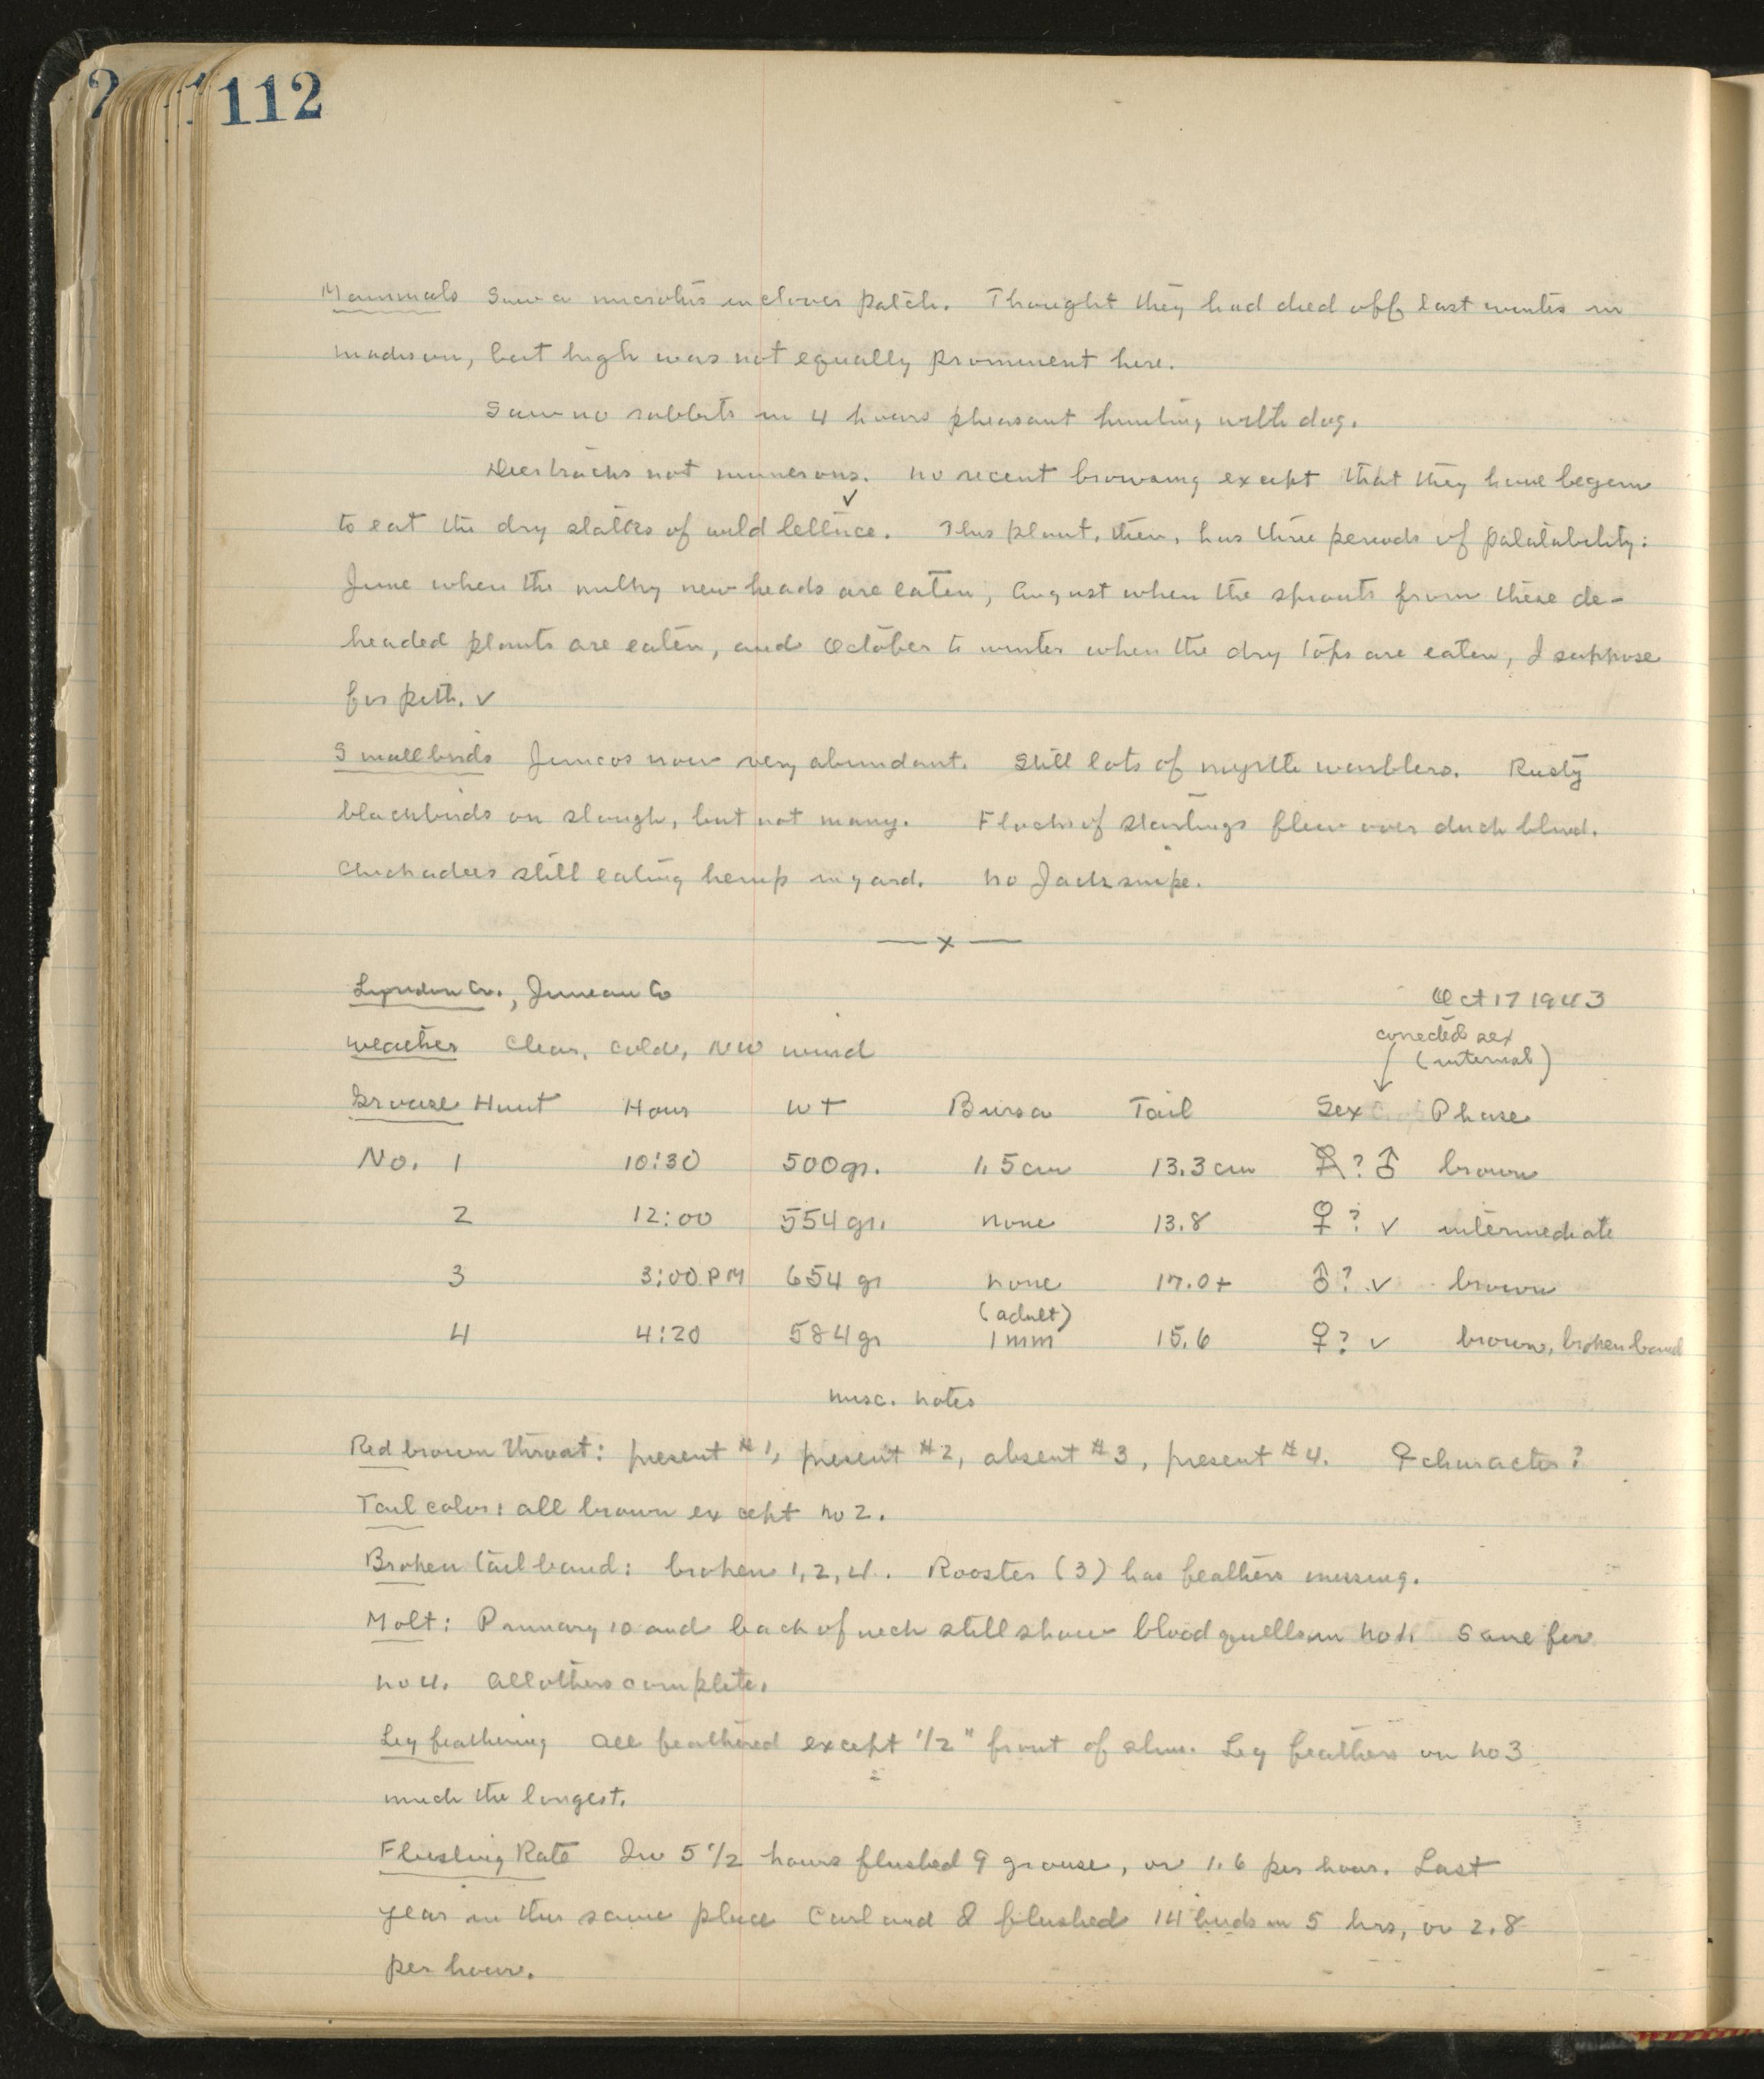 112
Mammals Saw a microtus in clover patch. Thought they had died off last winter in
Madison, but high was not equally prominent here.
Saw no rabbits in 4 hours pheasant hunting with dog.
Deer tracks not numerous. No recent browsing except that they have begun
to eat the dry stalks of wild lettuce. ✓ This plant, then, has three periods of palatability:
June when the milky new heads are eaten, August when the sprouts from these de-
headed plants are eaten, and October to winter when the dry tops are eaten, I suppose
for pith. ✓
Small birds Juncos now very abundant. Still lots of myrtle warblers. Rusty
blackbirds on slough, but not many. Flocks of starlings flew over duck blind.
Chickadees still eating hemp in yard. No Jacksnipe.
— x —
Lyndon Cr., Juneau Co Oct 17 1943
Weather Clear, cold, NW wind corrected sex
(internal)
Grouse Hunt Hour Wt Bursa Tail Sex Phase
No. 1 10:30 500 gr. 1.5 cm 13.3 cm ♀? ♂ brown
2 12:00 554 gr. none 13.8 ♀? ✓ intermediate
3 3:00 PM 654 gr none 17.0+ ♂? ✓ brown
(adult)
4 4:20 584 gr 1 mm 15.6 ♀? ✓ brown, broken band
misc. notes
Red brown throat: present #1, present #2, absent #3, present #4. ♀ character?
Tail color: all brown except no 2.
Broken tail band: broken 1, 2, 4. Rooster (3) has feathers missing.
Molt: Primary 10 and back of neck still show blood quills in no 1. Same for
no 4. All others complete.
Leg feathering All feathered except 1/2" front of shin. Leg feathers on no 3
much the longest.
Flushing Rate In 5 1/2 hours flushed 9 grouse, or 1.6 per hour. Last
year in this same place Carl and I flushed 14 birds in 5 hrs, or 2.8
per hour.